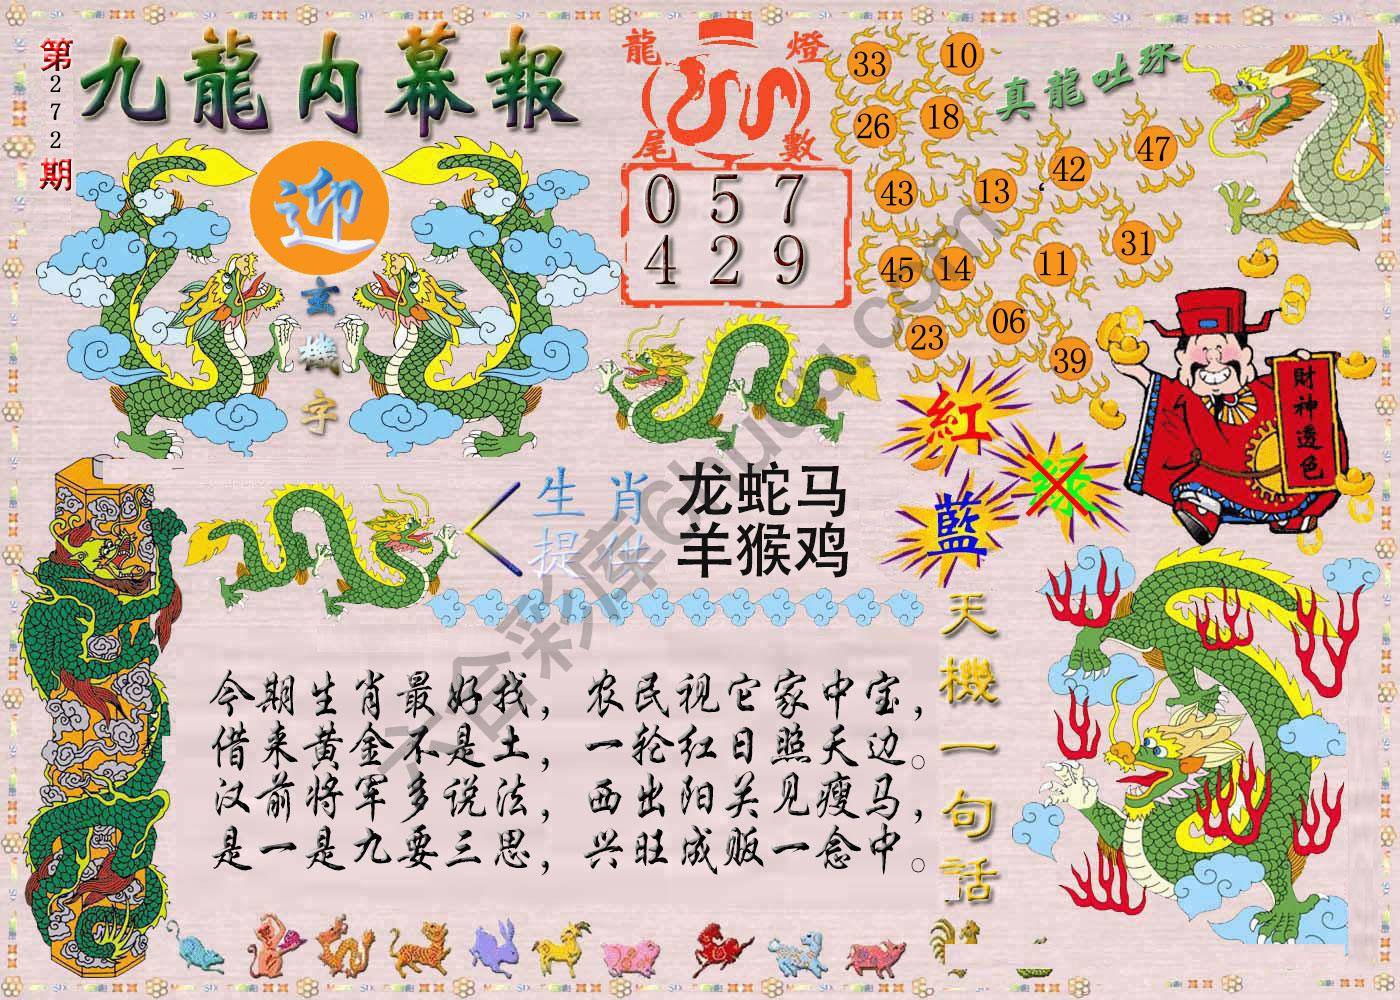 第272期
九龍内幕報
迎
玄機字
龍燈
尾數
057
429
33
10
26
18
43
13
42
47
45
14
11
31
23
06
39
真龍吐珠
財神透色
紅
绿
藍
生肖
提供
龙蛇马
羊猴鸡
天機一句话
今期生肖最好找，农民视它家中宝，
借来黄金不是土，一轮红日照天边。
汉前将军多说法，西出阳关见瘦马，
是一是九要三思，兴旺成败一念中。